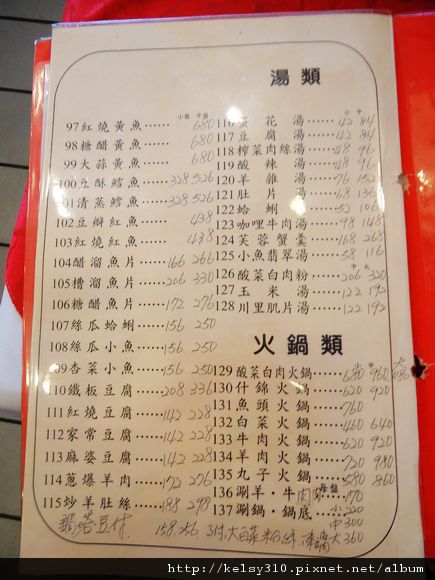 小盤 中盤
97紅燒黃魚……680
98糖醋黃魚……680
99大蒜黃魚……680
100豆酥鱈魚……328 526
101清蒸鱈魚……328 526
102豆瓣紅魚……438
103紅燒紅魚……438
104醋溜魚片……166 266
105糟溜魚片……206 330
106糖醋魚片……172 276
107絲瓜蛤蜊……156 250
108絲瓜小魚……156 250
109杏菜小魚……156 250
110鐵板豆腐……208 336
111紅燒豆腐……142 228
112家常豆腐……142 228
113麻婆豆腐……142 228
114蔥爆羊肉……172 276
115炒羊肚絲……188 298
湯類
小 中
116蛋花湯……42 84
117豆腐湯……42 84
118榨菜肉絲湯……48 96
119酸辣湯……48 96
120羊雜湯……76 152
121肚片湯……68 136
122蛤蜊湯……52 106
123咖哩牛肉湯……98 148
124芙蓉蟹羹……168 268
125小魚翡翠湯……58 116
126酸菜白肉粉……206 320
127玉米湯……122 192
128川里肌片湯……122 192
火鍋類
129酸菜白肉火鍋……680 960
130什錦火鍋……620 920
131魚頭火鍋……760
132白菜火鍋……460 640
133牛肉火鍋……620 920
134羊肉火鍋……720 980
135丸子火鍋……580 860
136涮羊·牛肉 每盤 170
137涮鍋·鍋底 小220
中300
大360
158 266
大白菜 粉絲 凍腐
http://kelsy310.pixnet.net/album